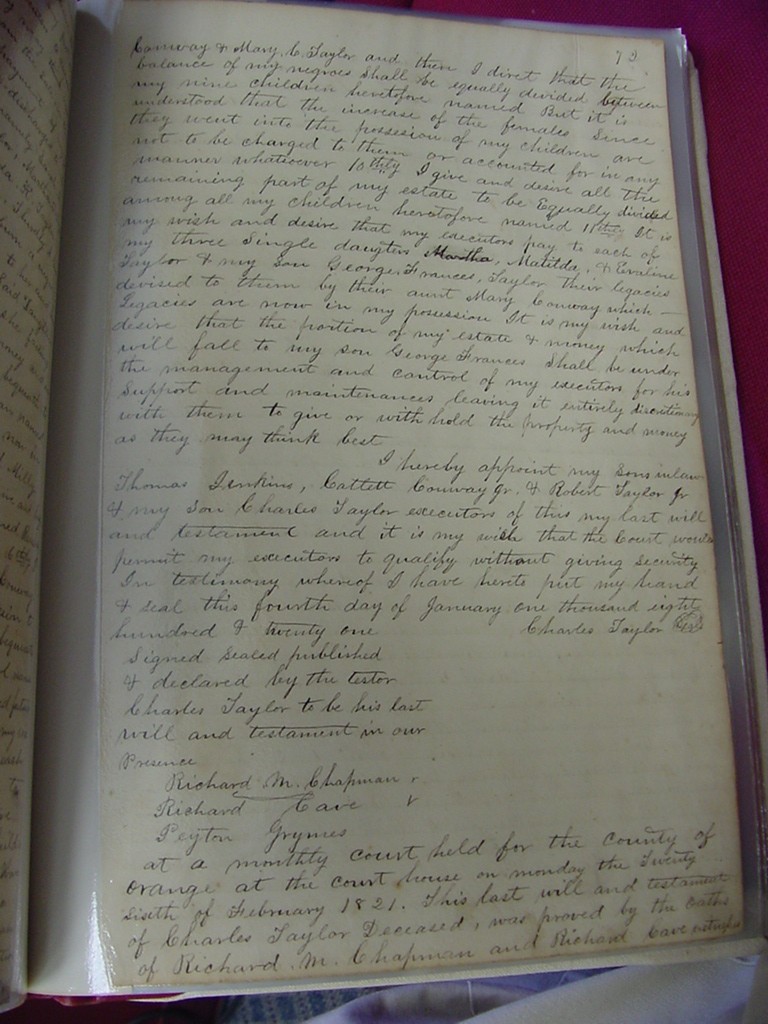 73
Conway & Mary C. Taylor and then I diret that the
balance of my negroes Shall be equally divided between
my nine children heretofore named But it is
understood that the increase of the females Since
they went into the possession of my children are
not to be charged to them or accounted for in any
manner whatsoever 10thly I give and desire all the
remaining part of my estate to be Equally divided
among all my children heretofore named 11thly It is
my wish and desire that my executors pay to each of
my three Single daugters Martha, Matilda, & Evaline
Taylor & my son George Frances, Taylor their legacies
devised to them by their aunt Mary Conway which —
Legacies are now in my possession It is my wish and
desire that the portion of my estate & money which
will fall to my son George Frances Shall be under
the management and control of my executors for his
Support and maintenances leaving it entirely discretionary
with them to give or with hold the property and money
as they may think best
I hereby appoint my Sons inlaw
Thomas Jenkins, Cattett Conway Jr. & Robert Taylor Jr
& my Son Charles Taylor executors of this my last will
and testament and it is my wish that the Court would
permit my executors to qualify without giving security
In testimony whereof I have hereto put my hand
& seal this fourth day of January one thousand eight
hundred & twenty one Charles Taylor
Signed Sealed published
& declared by the testor
Charles Taylor to be his last
will and testament in our
Presence
Richard M. Chapman
Richard Cave
Peyton Grymes
at a monthly court held for the county of
Orange at the court house on monday the Twenty
sixth of February 1821. This last will and testament
of Charles Taylor Deceased, was proved by the oaths
of Richard M. Chapman and Richard Cave